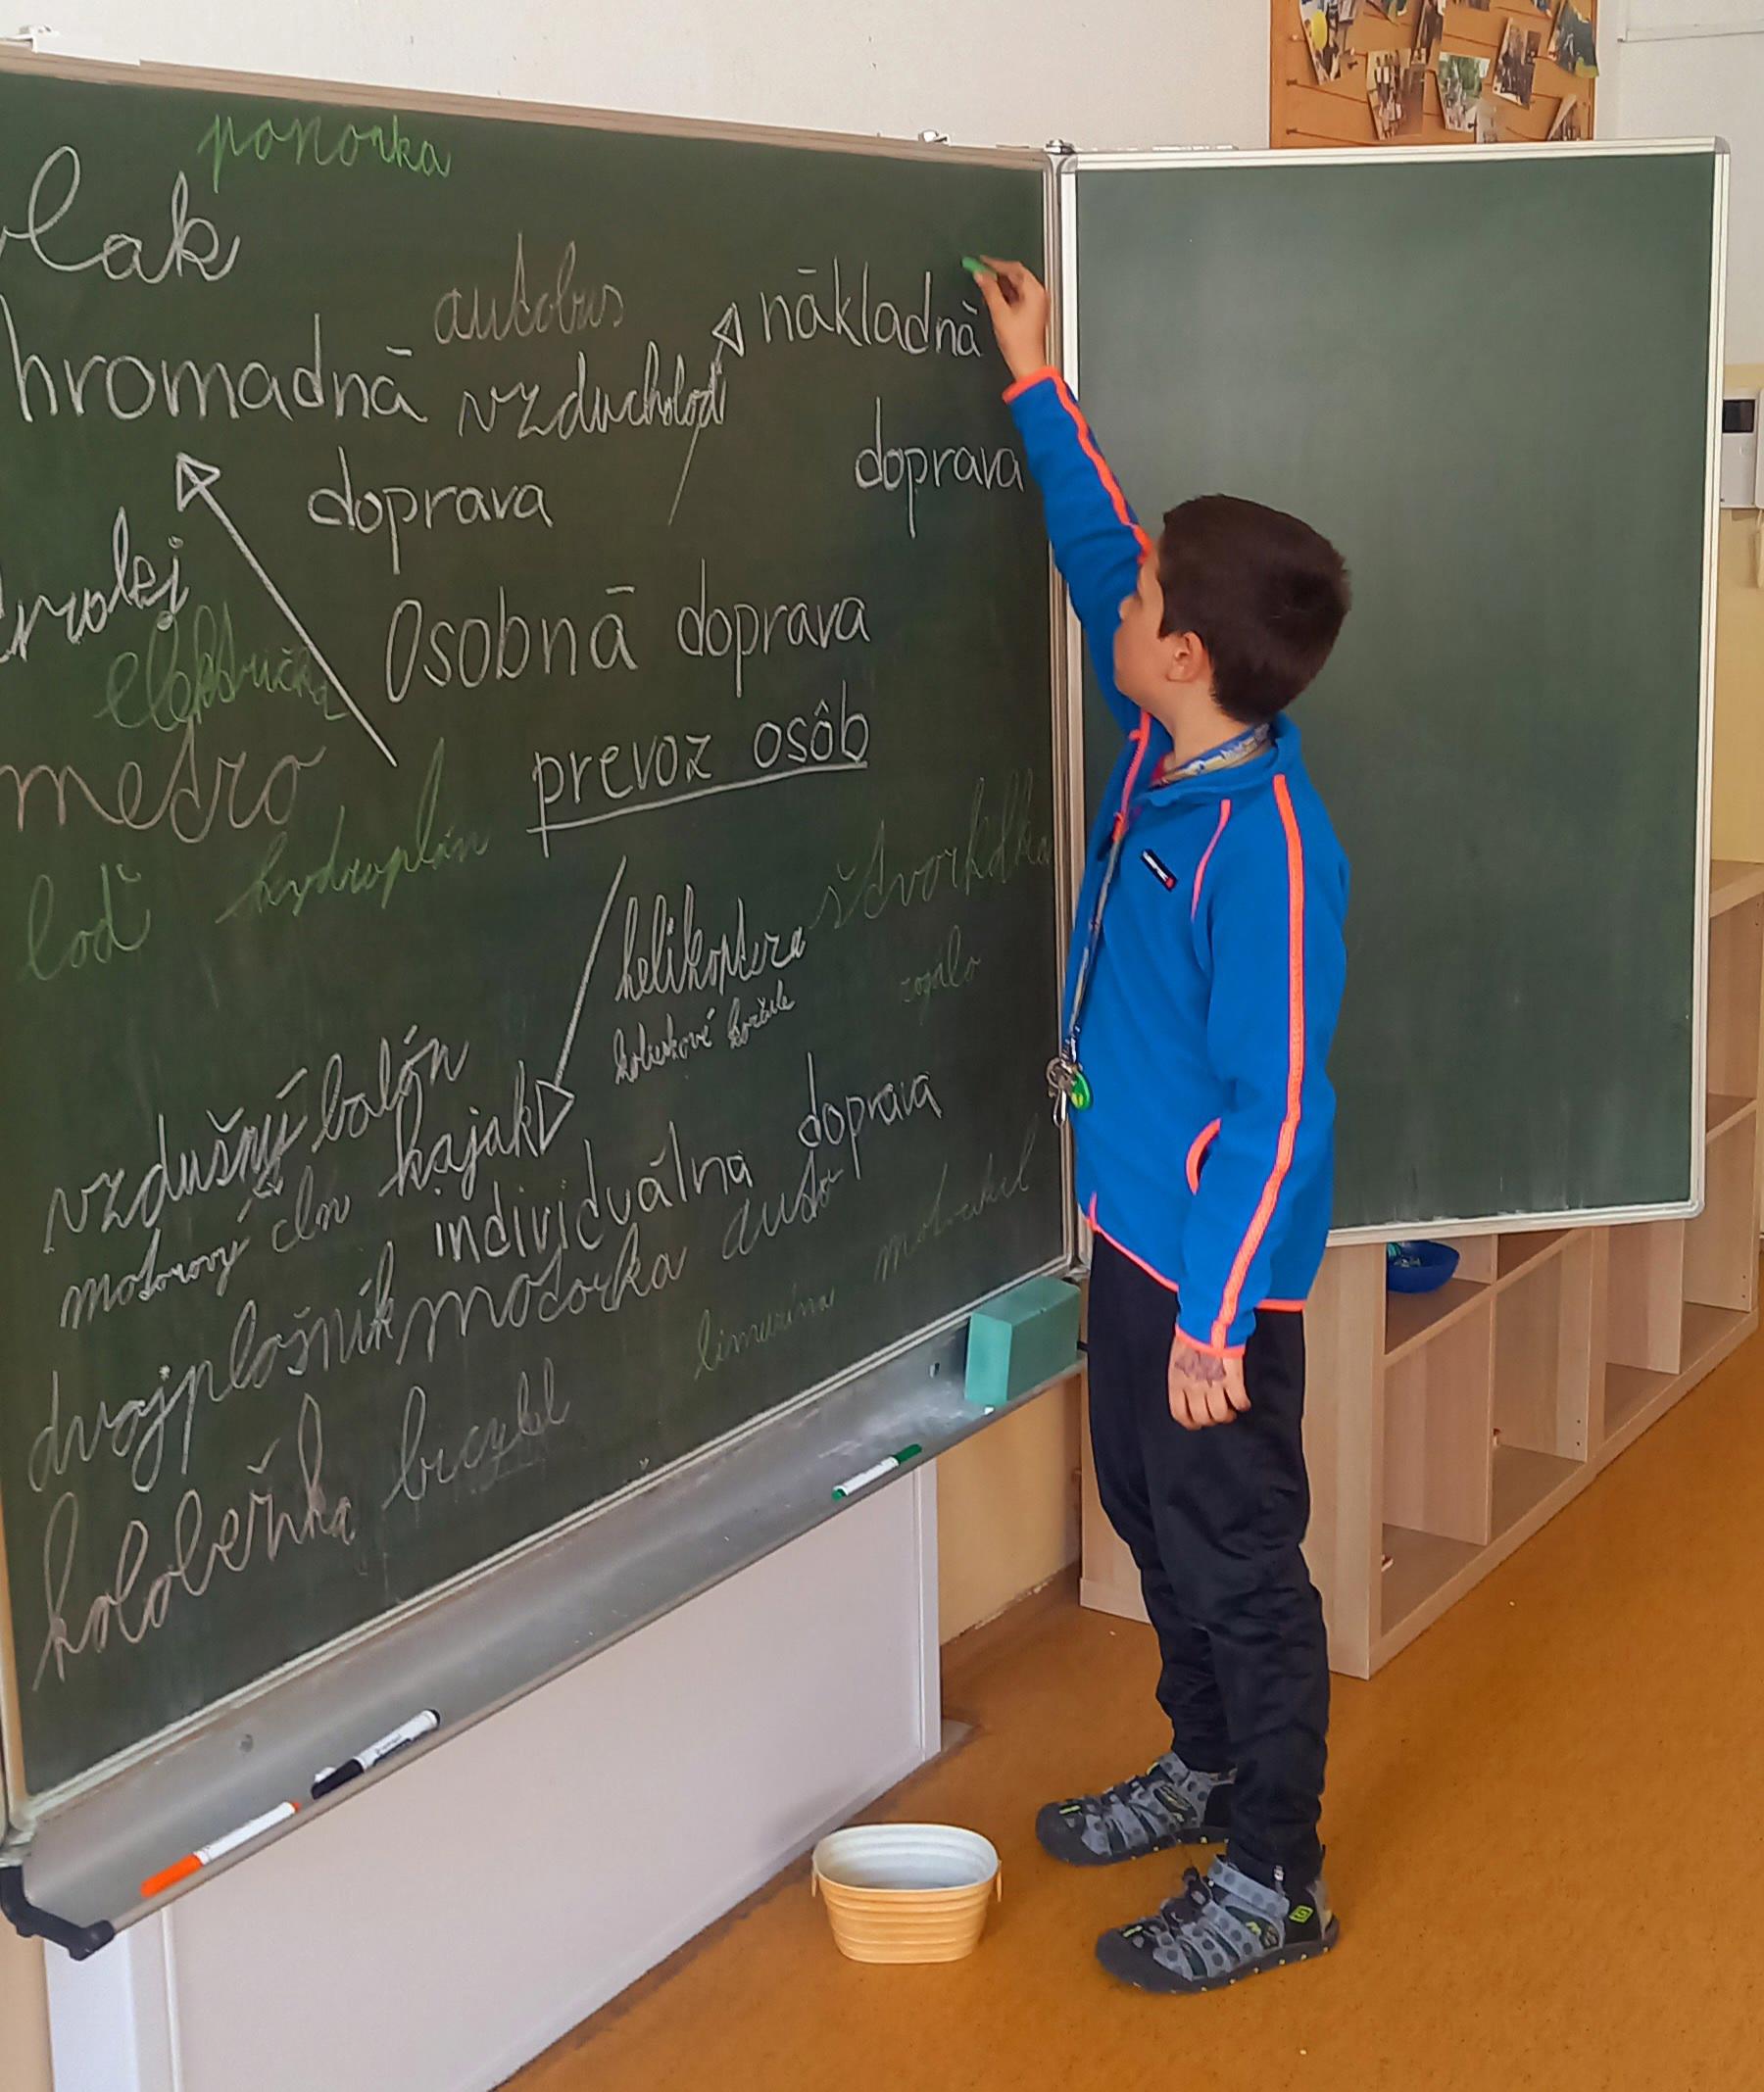 ponorka
vlak
autobus
nākladnā
hromadnā
vzducholoď
doprava
doprava
trolej
Osobnā doprava
električka
prevoz osôb
metro
hydroplán
štvorkolka
loď
helikoptera
rogalo
kolieskové korčule
vzdušný balón
kajak
doprava
motorový čln
individuálna
auto
motocikel
dvojplošník
motorka
limuzína
kolobežka
bicykel